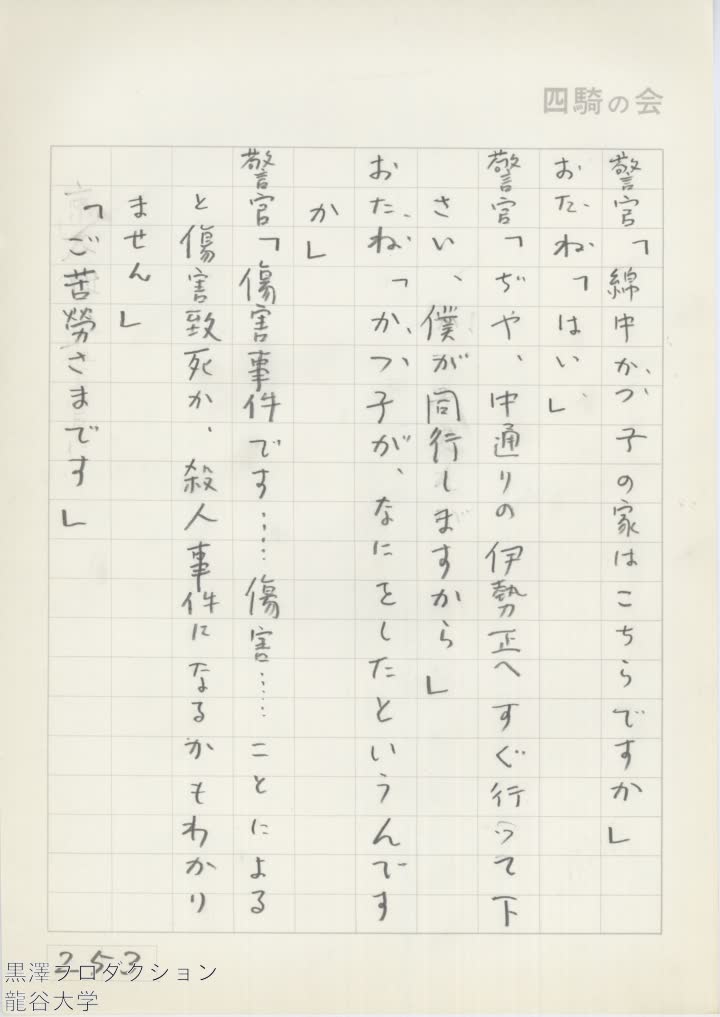 四騎の会
警官「綿中かつ子の家はこちらですか」
おたね「はい」
警官「ぢや、中通りの伊勢正へすぐ行つて下
さい、僕が同行しますから」
おたね「かつ子が、なにをしたというんです
か」
警官「傷害事件です……傷害…… ことによる
と傷害致死か、殺人事件になるかもわかり
ません」
「ご苦労さまです」
253
黒澤プロダクション
龍谷大学